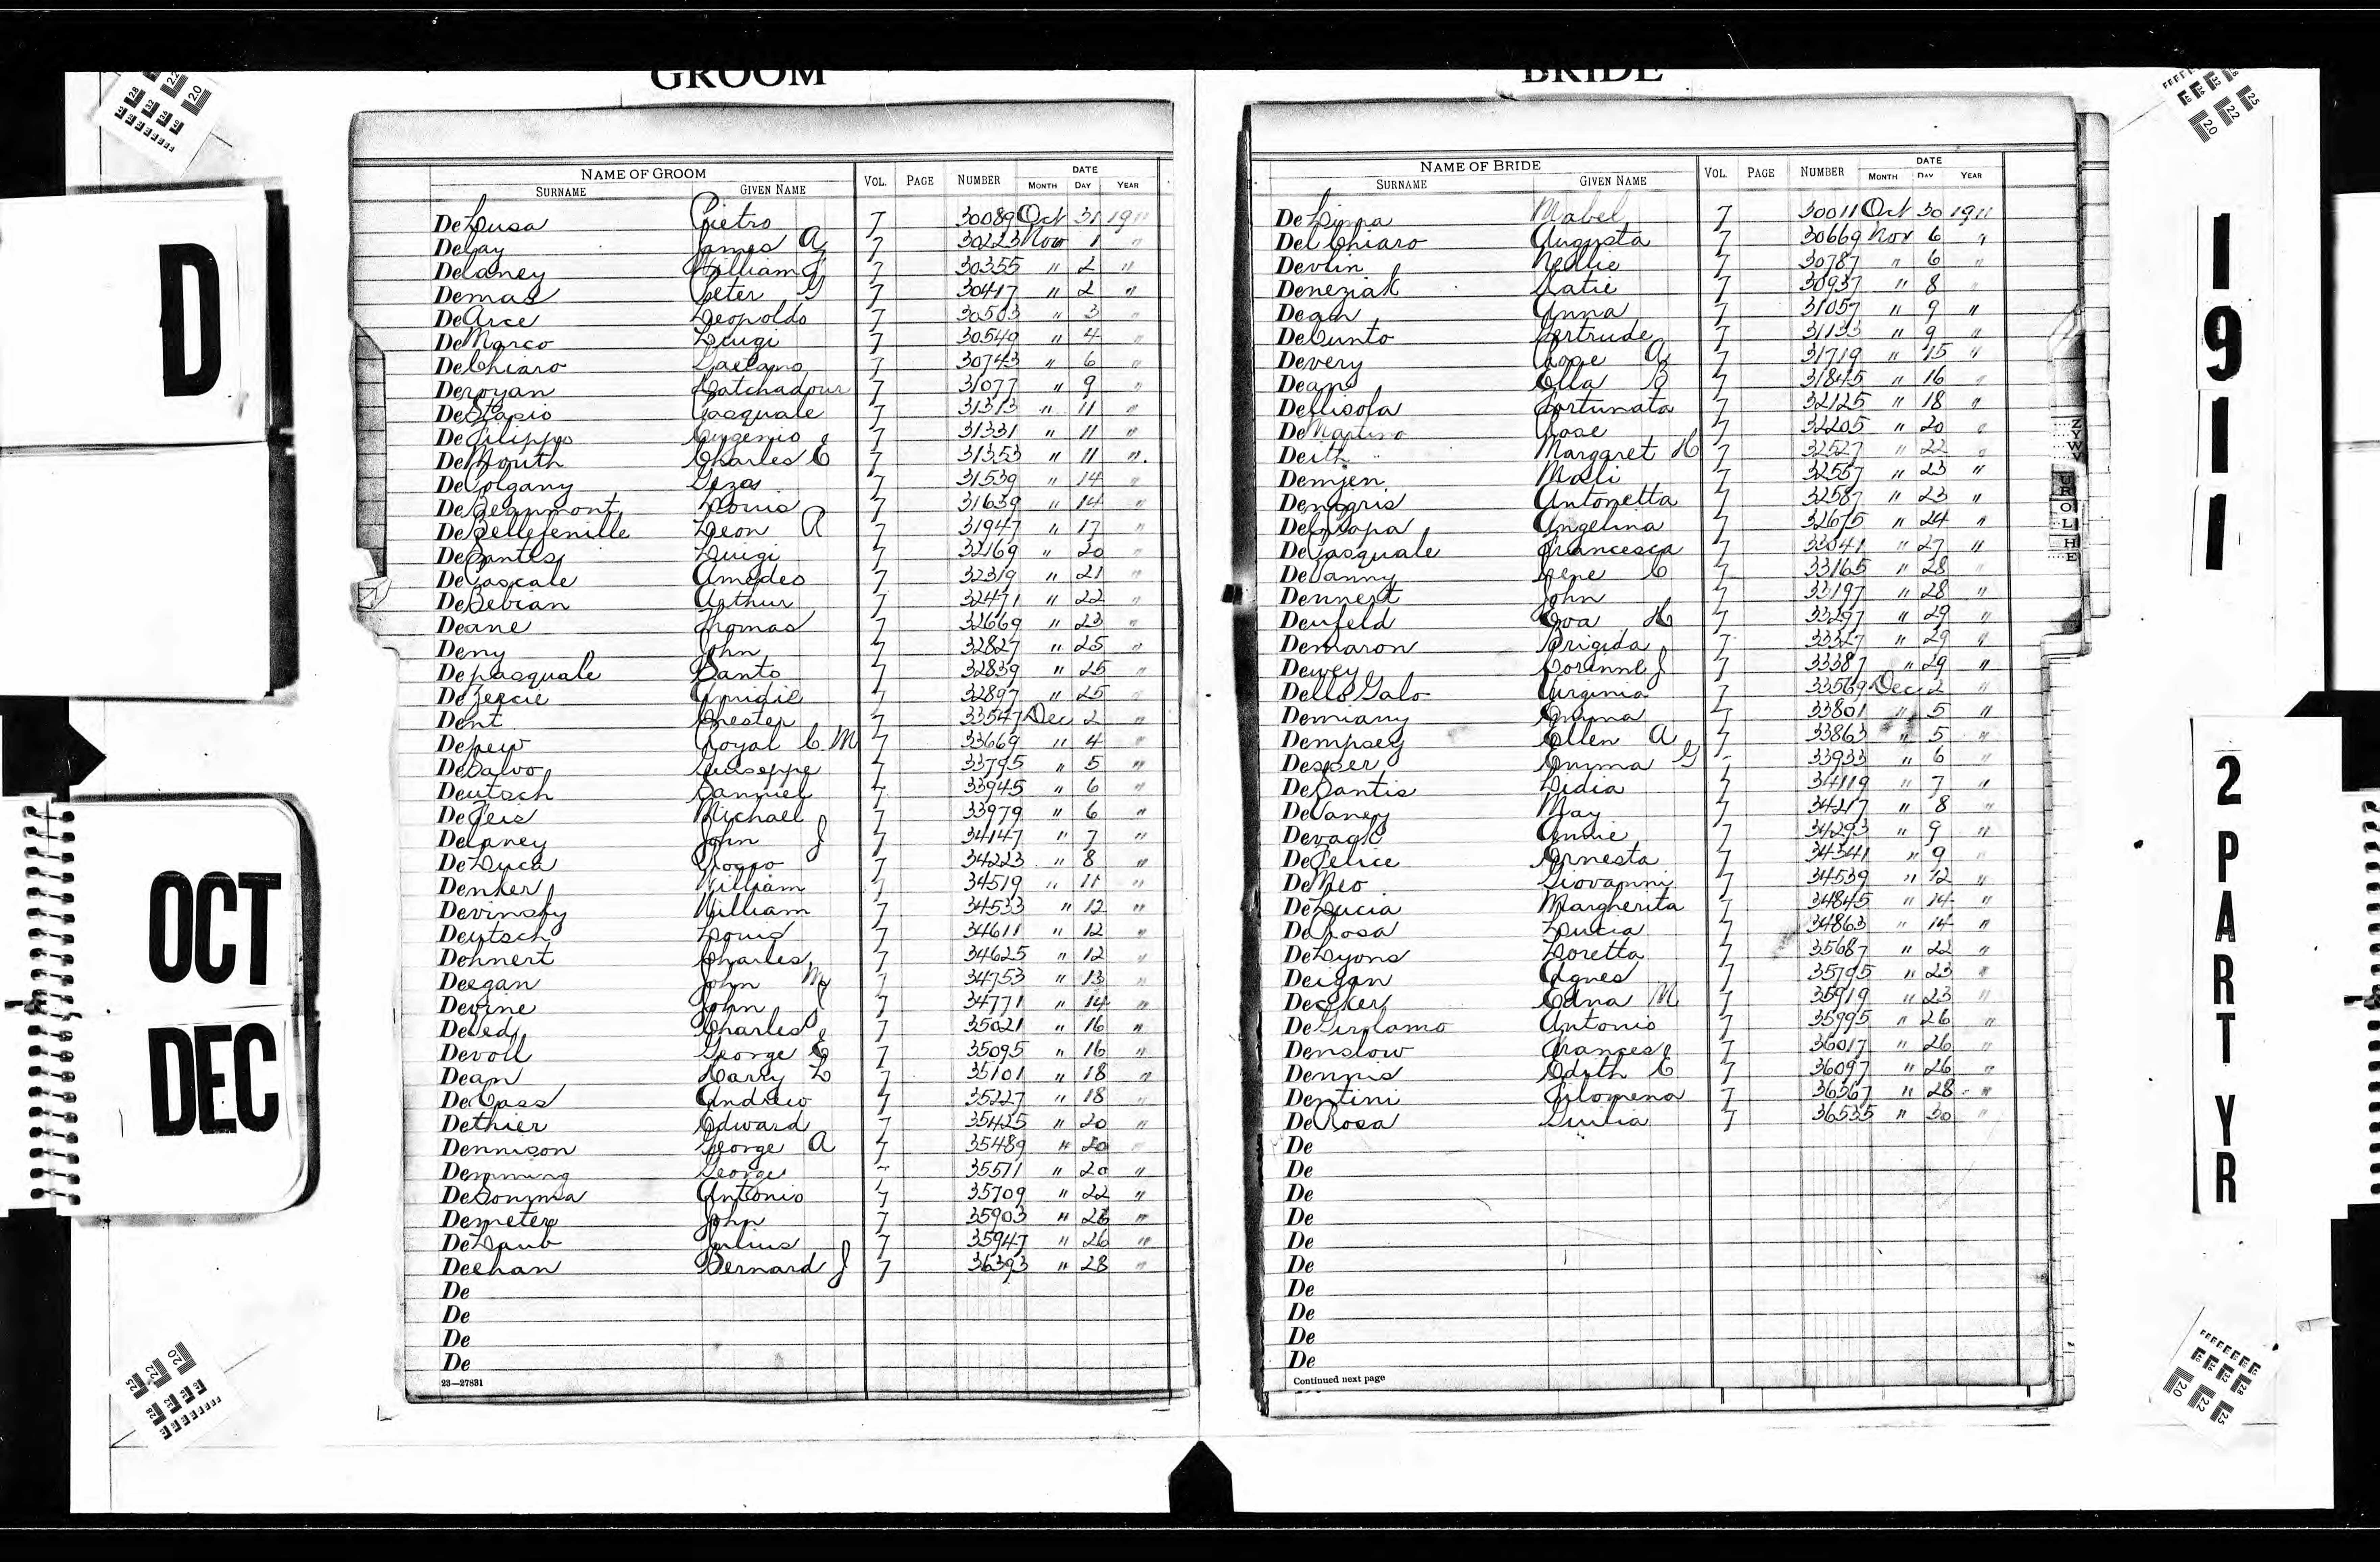 GROOM
NAME OF GROOM VOL. PAGE NUMBER DATE
SURNAME GIVEN NAME MONTH DAY YEAR
DeLusa Pietro 7 30089 Oct 31 1911
Delay James A 7 30223 Nov 1 "
Delaney William J 7 30355 " 2 "
Demas Peter G 7 30417 " 2 "
DeArce Leopoldo 7 30503 " 3 "
DeMarco Luigi 7 30549 " 4 "
DeChiaro Gaetano 7 30743 " 6 "
Deroyan Hatchadour 7 31077 " 9 "
DeStasio Pasquale 7 31313 " 11 "
DeFilippo Eugenio 7 31331 " 11 "
DeMouth Charles E 7 31353 " 11 "
DePolgany Geza 7 31539 " 14 "
DeBeaumont Louis 7 31639 " 14 "
DeBellefenille Leon A 7 31947 " 17 "
DeSantis Luigi 7 32169 " 20 "
DePascale Amedeo 7 32319 " 21 "
DeBebian Arthur 7 32471 " 22 "
Deane Thomas 7 32669 " 23 "
Deny John 7 32827 " 25 "
Depasquale Santo 7 32839 " 25 "
DeZercie 7 32897 " 25 "
Dent Chester 7 33547 Dec 2 "
Depew Royal C. M 7 33669 " 4 "
DeSalvo Guiseppe 7 33795 " 5 "
Deutsch Samuel 7 33945 " 6 "
DeFeis Michael 7 33979 " 6 "
Delaney John J 7 34147 " 7 "
DeLuca Rocco 7 34223 " 8 "
Denker William 7 34519 " 11 "
Devinsky William 7 34533 " 12 "
Deutsch Louis 7 34611 " 12 "
Dehnert Charles 7 34625 " 12 "
Deegan John M 7 34753 " 13 "
Devine John J 7 34771 " 14 "
Deledj Charles 7 35021 " 16 "
Devoll George E 7 35095 " 16 "
Dean Harry L 7 35101 " 18 "
DePass Andrew 7 35227 " 18 "
Dethier Edward 7 35425 " 20 "
Dennison George A 7 35489 " 20 "
Demming George 35511 " 20 "
DeSomma Antonio 7 35709 " 22 "
Demeter John 7 35903 " 23 "
DeLaub Julius 7 35947 " 26 "
Deehan Bernard J 7 36393 " 28 "
De
De
De
De
23—27831
BRIDE
NAME OF BRIDE VOL. PAGE NUMBER DATE
SURNAME GIVEN NAME MONTH DAY YEAR
DeLippa Mabel 7 30011 Oct 30 1911
DelChiaro Augusta 7 30669 Nov 6 "
Devlin Nellie 7 30787 " 6 "
Deneziak Katie 7 30937 " 8 "
Dean Anna 7 31057 " 9 "
DeCunto Gertrude 7 31133 " 9 "
Devery Rose A 7 31719 " 15 "
Dean Ella B 7 31845 " 16 "
Dellisola Fortunata 7 32125 " 18 "
DeMartino Rose 7 32205 " 20 "
Deith Margaret H 7 32527 " 22 "
Demjen Mali 7 32557 " 23 "
Denigris Antonetta 7 32587 " 23 "
DelPapa Angelina 7 32675 " 24 "
DePasquale Francesca 7 33041 " 27 "
DeVanny Irene C 7 33165 " 28 "
Dennert John 7 33197 " 28 "
Denfeld Eva H 7 33297 " 29 "
Demaron Brigida 7 33327 " 29 "
Dewey Corinne J 7 33387 " 29 "
DelloGalo Virginia 7 33569 Dec 2 "
Demiany Emma 7 33801 " 5 "
Dempsey Ellen A 7 33863 " 5 "
Desper Emma G 33933 " 6 "
DeSantis Lidia 7 34119 " 7 "
DeVaney May 7 34217 " 8 "
Devack Annie 7 34293 " 9 "
DeFelice Ernesta 7 34341 " 9 "
DeMeo Giovanni 7 34539 " 12 "
DeLucia Margherita 7 34845 " 14 "
DeRosa Lucia 7 34863 " 14 "
DeLyons Loretta 7 35687 " 22 "
Deigan Agnes 7 35795 " 23 "
Decker Edna M 7 35919 " 23 "
DeGirolamo Antonio 7 35995 " 26 "
Denslow Frances 7 36017 " 26 "
Dennis Edith C 7 36097 " 26 "
Dentini Filomena 7 36367 " 28 "
DeRosa Giulia 7 36535 " 30 "
De
De
De
De
De
De
De
De
De
De
Continued next page
D
OCT
DEC
1911
2
PART
YR